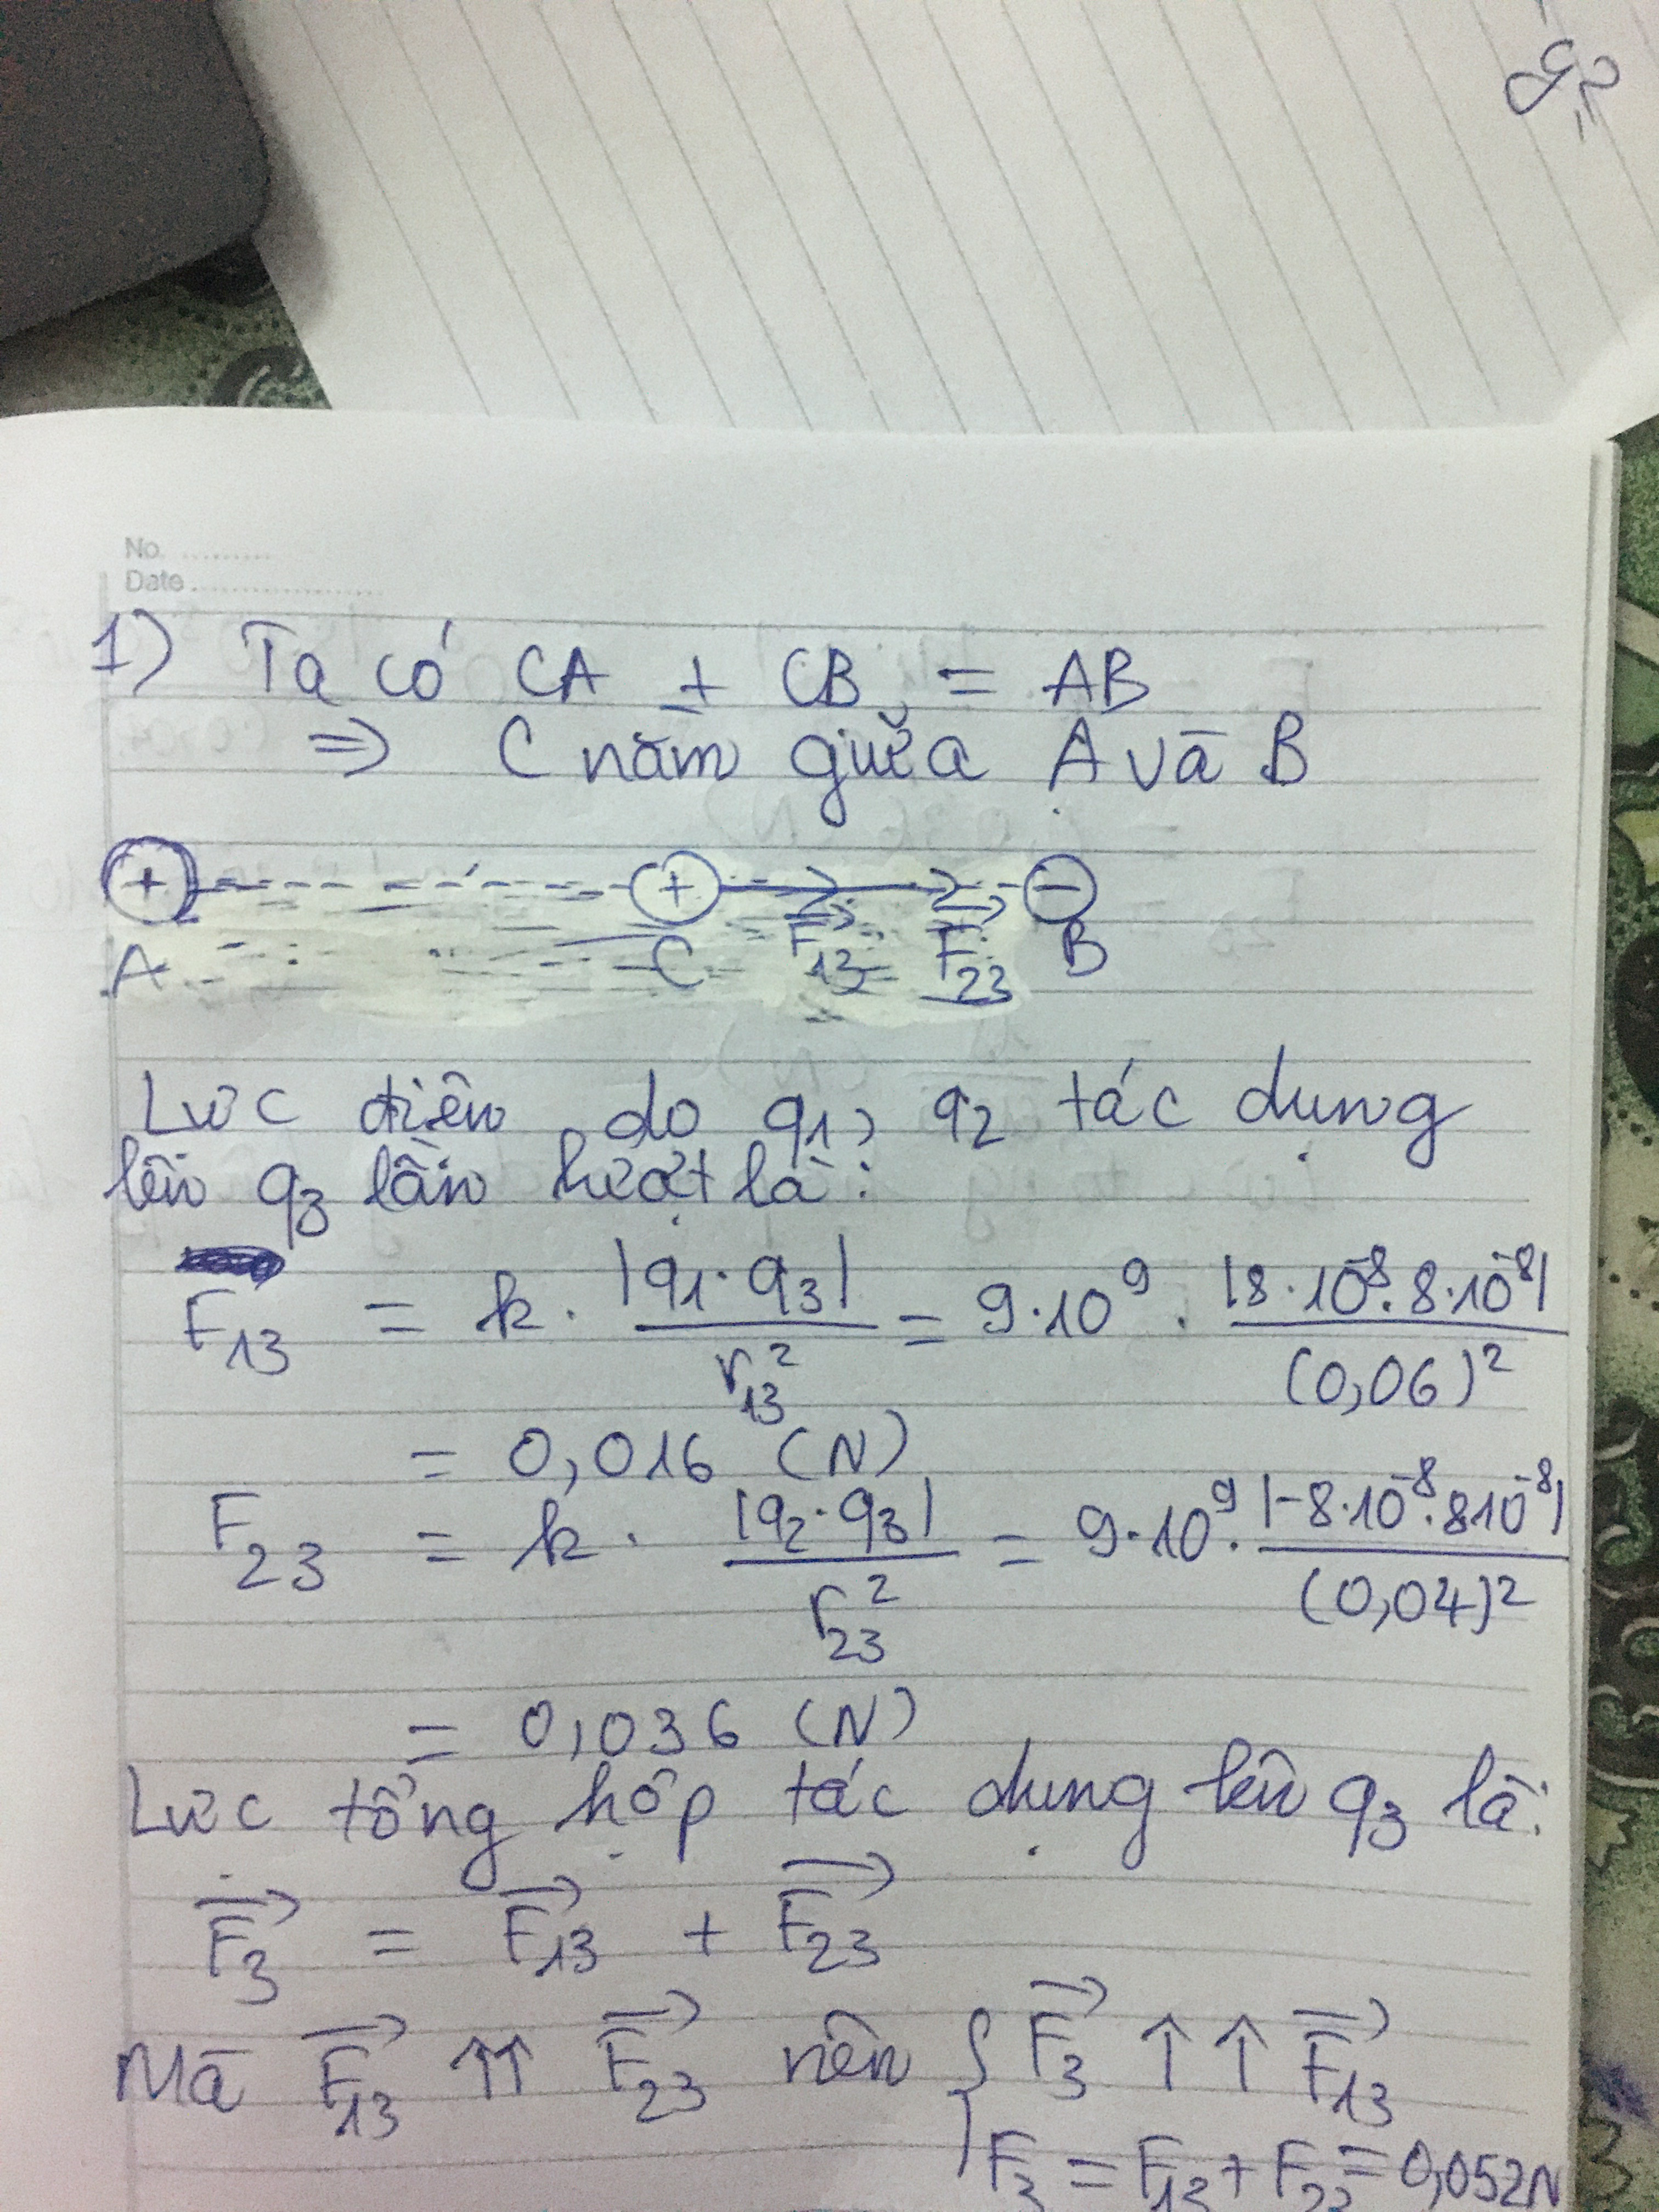 No.
Date
1) Ta có CA + CB = AB
=> C nằm giữa A và B
+ + -
A C F13 F23 B
Lực điện do q1, q2 tác dụng
lên q3 lần lượt là:
F13 = k . |q1 . q3| / r13² = 9.10⁹ . |8.10⁻⁸ . 8.10⁻⁸| / (0,06)²
= 0,016 (N)
F23 = k . |q2 . q3| / r23² = 9.10⁹ . |-8.10⁻⁸ . 8 10⁻⁸| / (0,04)²
= 0,036 (N)
Lực tổng hợp tác dụng lên q3 là:
F⃗3 = F⃗13 + F⃗23
Mà F⃗13 ↑↑ F⃗23 nên { F⃗3 ↑↑ F⃗13
F3 = F13 + F23 = 0,052N